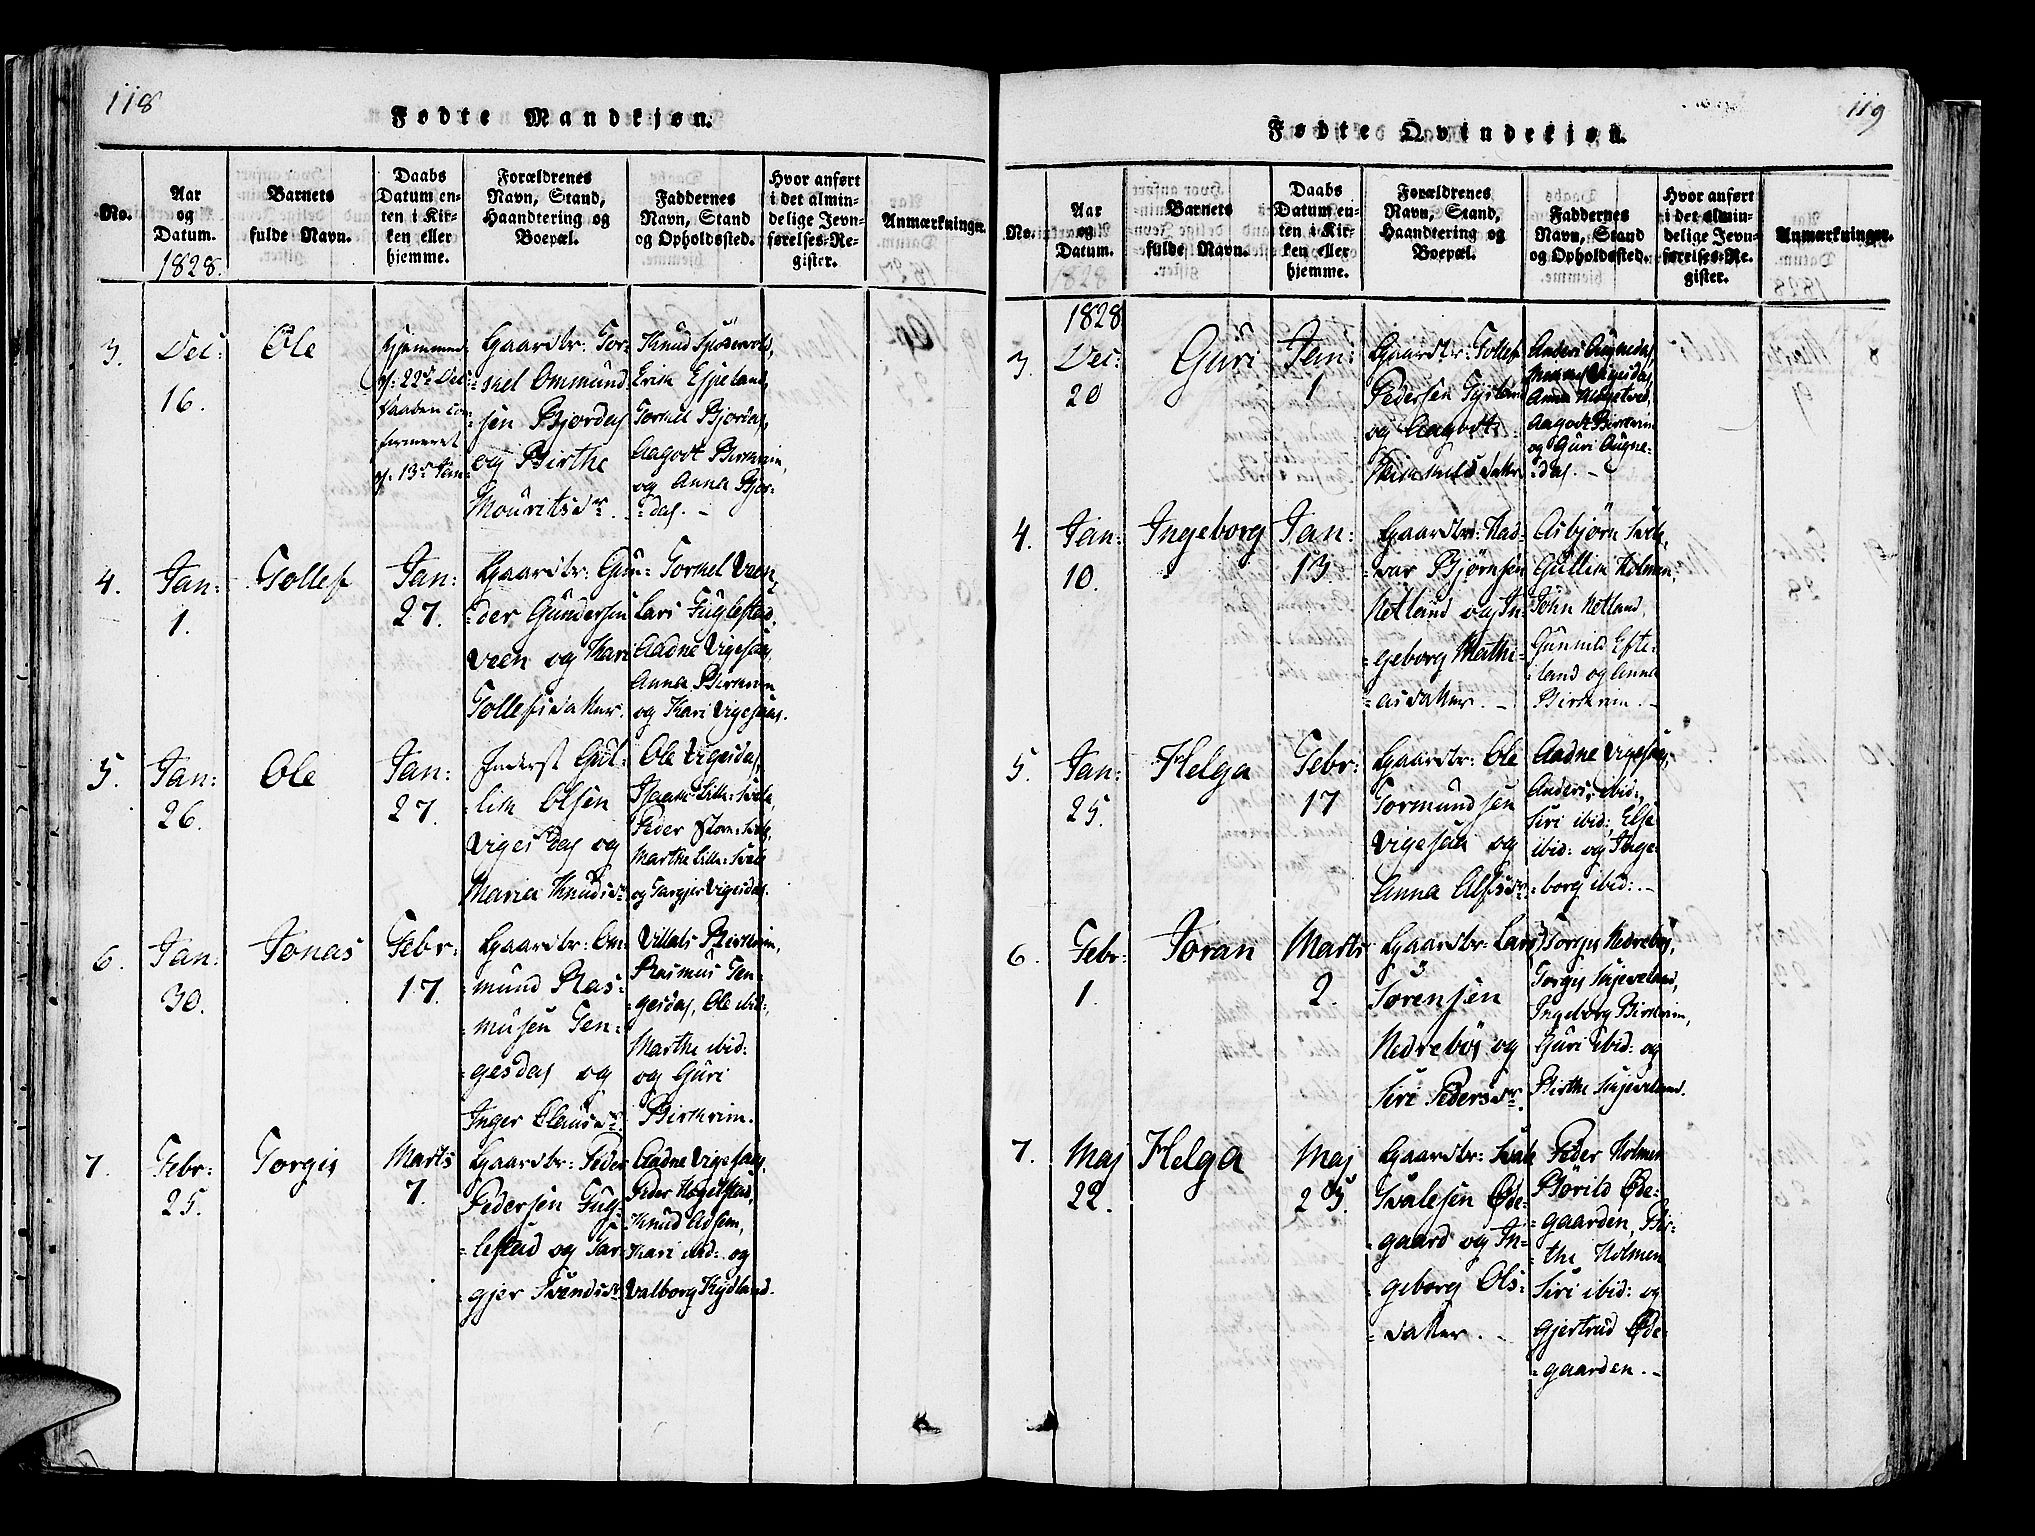 118
Fødte Mandkjøn.
No.
Aar
og
Datum.
1828.
Barnets
fulde Navn.
Daabs
Datum en-
ten i Kir-
ken eller
hjemme.
Forældrenes
Navn, Stand,
Haandtering og
Boepæl.
Faddernes
Navn, Stand
og Opholdssted.
Hvor anført
i det almin-
delige Jevn-
førelses-Re-
gister.
Anmærkninger.
3.
Dec:
16.
Ole
Hjemmed.
d: 22de Dec:
Daaben con-
firmeret
d: 13de Jan:
Gaardbr: Tor-
=mel Ommund
=sen Bjordal
og Birthe
Mouritsdr.
Knud
Erik Espeland,
Tormel Bjordal,
Aagodt Birkrem,
og Anna Bjor-
=dal. -
4.
Jan:
1.
Tollef
Jan:
27.
Gaardbr: Gun-
=der Gundersen
Veen og Kari
Tollefsdatter.
Tormel Veen,
Lars Fuglestad,
Aadne Vigesaa,
Anna Birkrem
og Kari Vigesaa.
5.
Jan:
26.
Ole
Jan:
27.
Inderst Gul-
lik Olsen
Vigesdal og
Maria Knudsdr.
Ole Vigesdal,
Isaak Lille-Svele,
Peder Store-Svele,
Marthe Lille-Svele
og Targjer Vigesdal.
6.
Jan:
30.
Jonas
Febr:
17.
Gaardbr: Om-
=mund Ras-
=musen Ten-
=gesdal og
Inger Clausdr.
Villats Birkrem,
Rasmus Ten-
=gesdal, Ole ibid:,
Marthe ibid:
og Guri
Birkrem.
7.
Febr:
25.
Torgis
Marts
7.
Gaardbr: Peder
Pedersen Fug-
=lestad og Tar-
gjer Svendsdr.
Aadne Vigesaa,
Peder Høgelstad,
Knud Adsem,
Kari ibid: og
Valborg Kydland.
119
Fødte Qvindekjøn.
No.
Aar
og
Datum.
Barnets
fulde Navn.
Daabs
Datum en-
ten i Kir-
ken eller
hjemme.
Forældrenes
Navn, Stand,
Haandtering og
Boepæl.
Faddernes
Navn, Stand
og Opholdssted.
Hvor anført
i det almin-
delige Jevn-
førelses-Re-
gister.
Anmærkninger.
1828
3.
Dec:
20
Guri
Jan:
1
Gaardbr: Tollef
Pedersen
og Aagodt
Anders Augnedal,
Vigesdal,
Anna
Aagodt Birkrem
og Guri Augne-
=dal. -
4.
Jan:
10.
Ingeborg
Jan:
13
Gaardbr: Had-
=var Bjørnsen
Netland og In-
=geborg Mathi-
=asdatter. -
Asbjørn Svele,
Gullik Holmen,
John Netland,
Gunnild Efte-
=land og Anna
Birkrem. -
5.
Jan:
25.
Helga
Febr:
17
Gaardbr: Ole
Tormundsen
Vigesaa og
Anna Alfsdr.
Aadne Vigesaa,
Anders ibid:,
Siri ibid:, Else
ibid: og Inge-
=borg ibid:. -
6.
Febr:
1.
Joran
Marts
2.
Gaardbr: Lars
Sørensen
Nedrebøe og
Siri Pedersdr.
Torgis Nedrebøe,
Torgis Skjeveland,
Ingeborg Birkrem,
Guri ibid: og
Birthe Skjeveland.
7.
Maj
22.
Helga
Maj
25.
Gaardbr: Svale
Svalesen Øde-
=gaard og In-
=geborg Ols-
=datter. -
Peder Holmen
Børild Øde-
=gaarden, Bir-
=the Holmen
Siri ibid: og
Gjertrud Øde-
=gaarden. -